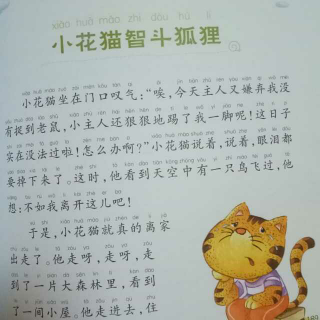 xiǎo huā māo zhì dòu hú li
小花猫智斗狐狸
小花猫坐在门口叹气:“唉,今天主人又嫌弃我没
有捉到老鼠,小主人还狠狠地踢了我一脚呢!这日子
实在没法过啦!怎么办啊?”小花猫说着,说着,眼泪都
要掉下来了。这时,他看到天空中有一只鸟飞过,他
想:不如我离开这儿吧!
于是,小花猫就真的离家
出走了。他走呀,走呀,走
到了一片大森林里,看到
了一间小屋。他走进去,住
189